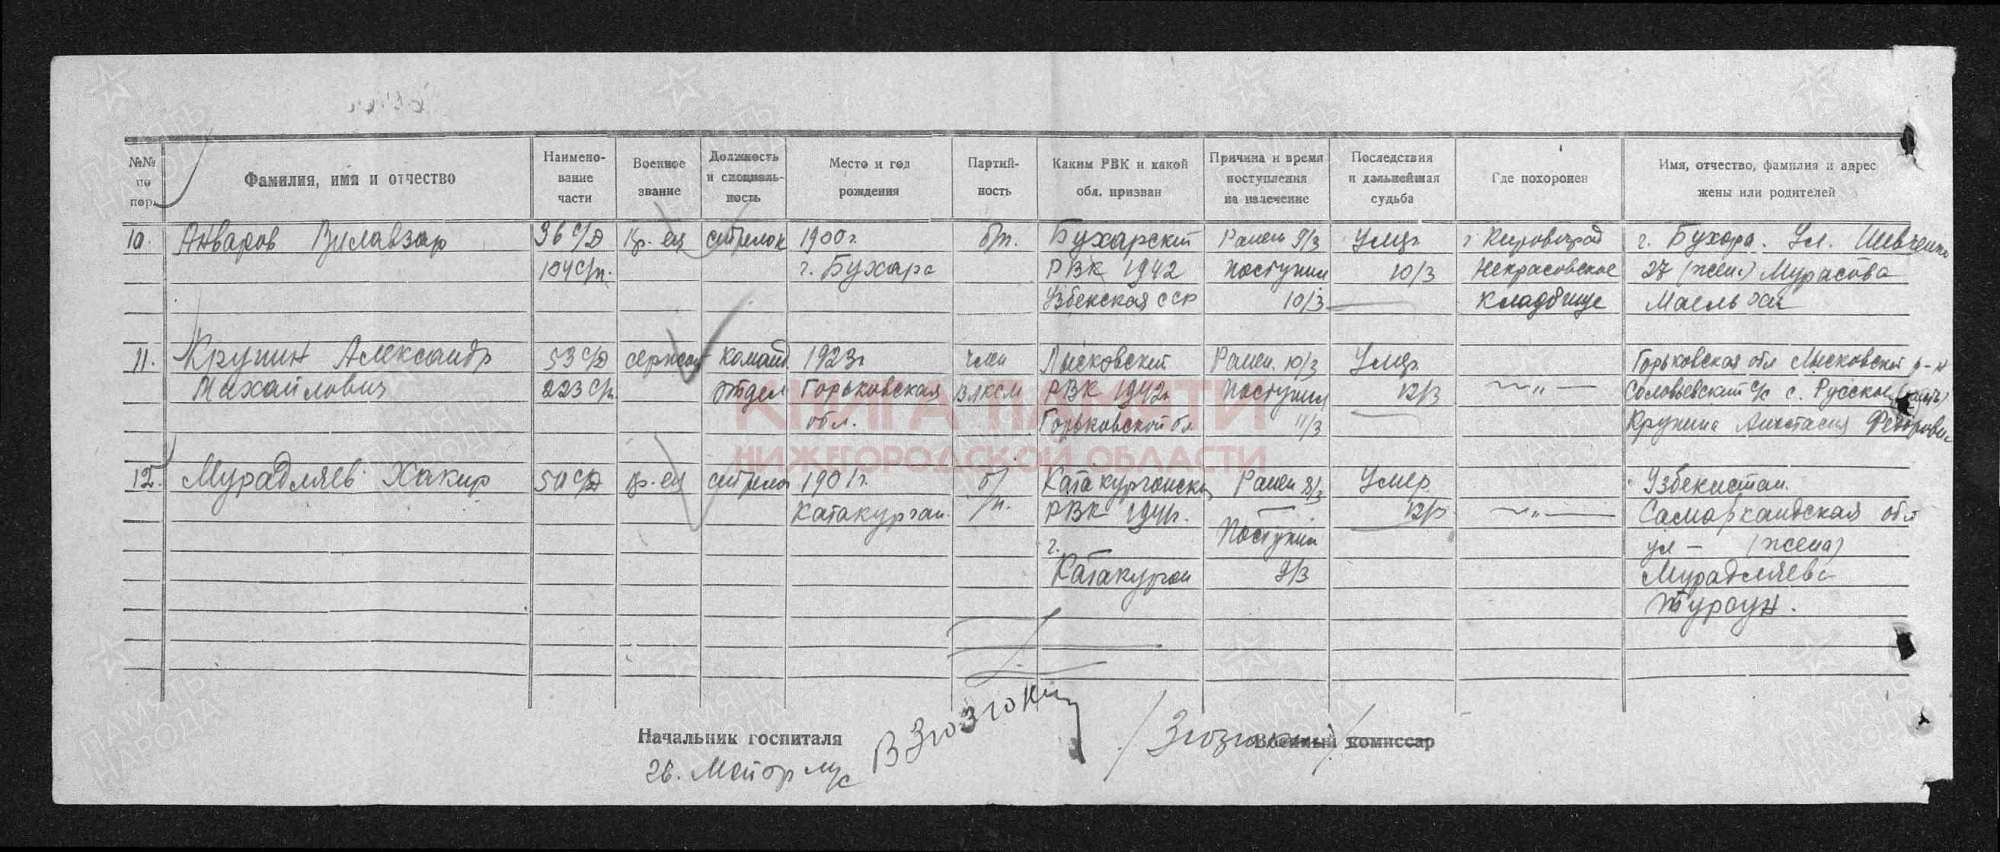 №№ по пор.
Фамилия, имя и отчество
Наимено-вание части
Военное звание
Должность и специаль-ность
Место и год рождения
Партий-ность
Каким РВК и какой обл. призван
Причина и время поступления на излечение
Последствия и дальнейшая судьба
Где похоронен
Имя, отчество, фамилия и адрес жены или родителей
10. Анваров 36 с/д кр-ец стрелок 1900 г. б/п. Бухарский Ранен 9/3 Умер г Кировоград г. Бухара. Ул. Шевченко
104 с/п. г. Бухара РВК 1942 поступил 10/3 Некрасовское 27 (жена) Мурасова
Узбекская ССР 10/3 кладбище
11. Крупин Александр 53 с/д сержант команд. 1923 г член Лысковский Ранен 10/3 Умер Горьковская обл Лысковский р-н
Михайлович 223 с/п. отдел Горьковская ВЛКСМ РВК 1942г Поступил 12/3 — „ — Соловьевский с/с с. Русское
обл. Горьковской обл 11/3 Крупина Анастасия Федоровн
12. Мурадляев Хакир 50 с/д кр-ец стрелок 1901 г. б/п. Катакурганский Ранен 8/3 Умер Узбекистан.
Катакурган. РВК 1941г. 12/3 — „ — Самаркандская обл
г. Поступил ул — (жена)
Катакурган 9/3 Мурадляева
КНИГА ПАМЯТИ
НИЖЕГОРОДСКОЙ ОБЛАСТИ
Начальник госпиталя
Военный комиссар
гв. Майор м/с
ПАМЯТЬ НАРОДА